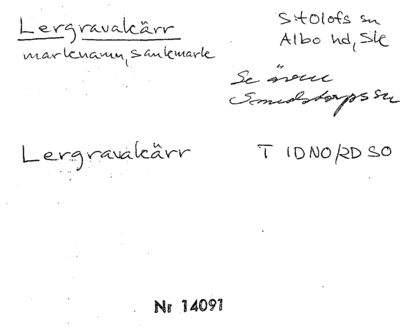 Lergravakärr
marknamn, sankmark
St Olofs sn
Albo hd, Sk
Se även
Smedstorps sn
Lergravakärr T 1D NO/2D SO
Nr 14091